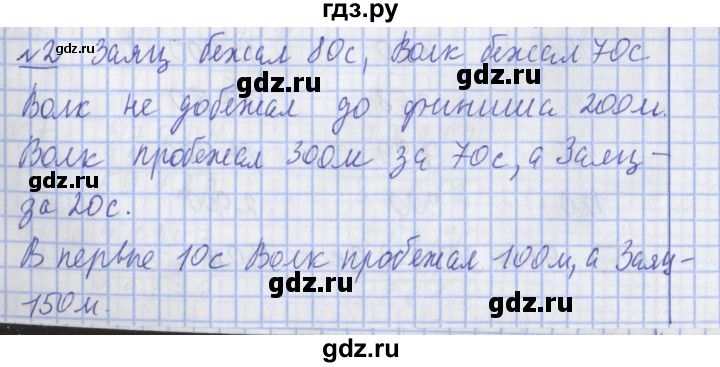 гдз.ру
№2 Заяц бежал 80с, Волк бежал 70с
gdz.ru gdz.ru gdz.ru
Волк не добежал до финиша 200м.
gdz.ru gdz.ru
Волк пробежал 300м за 70с, а Заяц -
gdz.ru gdz.ru
за 20с.
gdz.ru
В первые 10с Волк пробежал 100м, а Заяц -
gdz.ru
150м.
gdz.ru gdz.ru